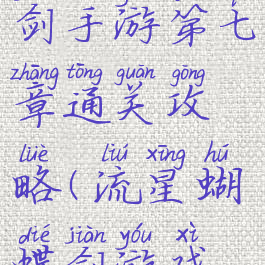 剑手游第七
zhāng tōng guān gōng
章通关攻
lüè liú xīng hú
略(流星蝴
dié jiàn yóu xì
蝶剑游戏